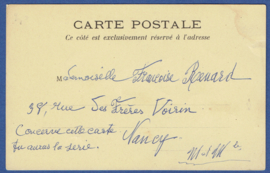 CARTE POSTALE
Ce côté est exclusivement réservé à l'adresse
Mademoiselle Renard
39, rue des Frères Voirin
Conserve cette carte Nancy
tu auras la série.